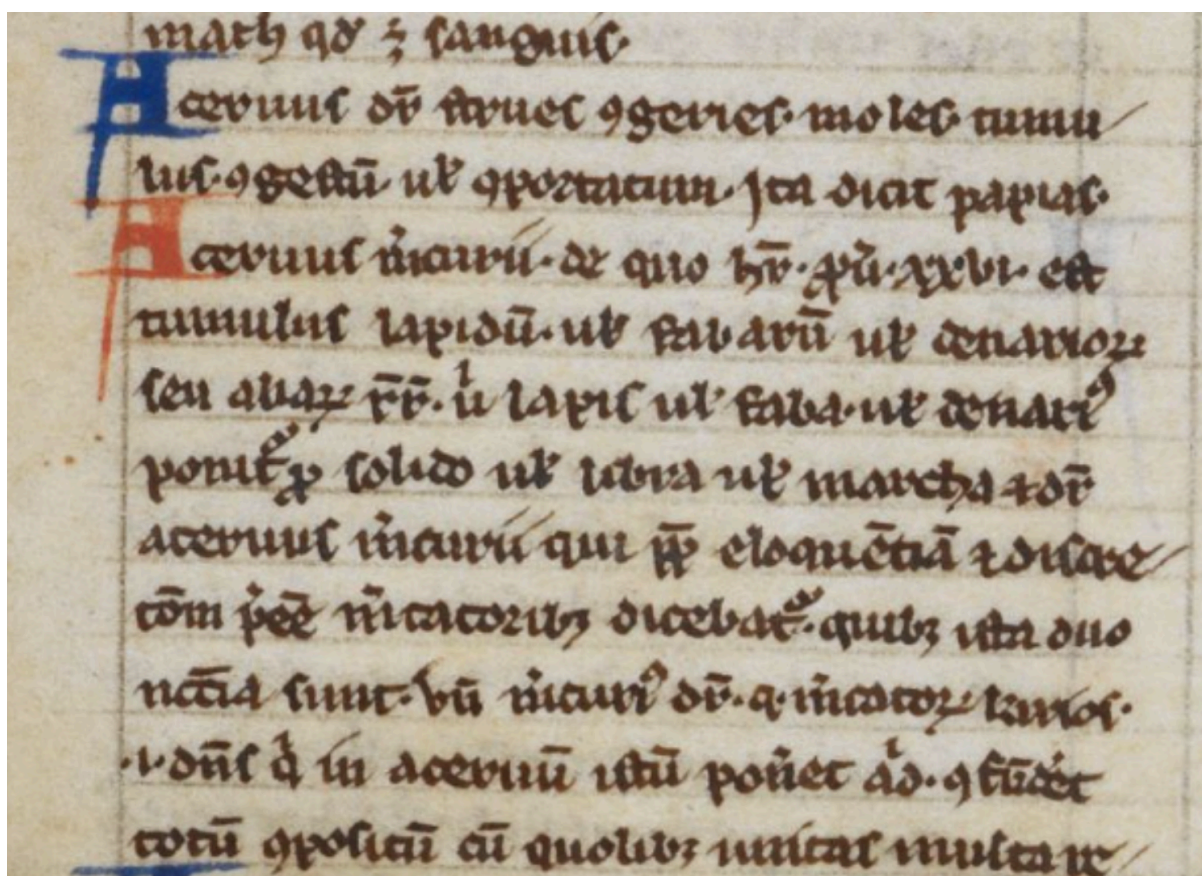 math qd̾ ꝫ sanguis·
Aceruus dr̄ strues ꝯgeries· moles· tumu/
lus· ꝯgestū ul̾ ꝯportatum· Ita dicit papias·
Aceruus m̾curii· de quo hr̄· ꝓu̾· xxvi· est
tumulus lapidū· ul̾ fabarū ul̾ denarioꝝ
seu aliaꝝ rr̄· uͥ lapis ul̾ faba· ul̾ denariꝰ
ponit᷑ ꝓ solido ul̾ libra ul̾ marcha ⁊ dr̄
aceruus m̾curii qui ꝓp̄ eloquētiā ⁊ discre/
tōm p̾eē̄ m̾catoribꝫ dicebat᷑· quibꝫ ista duo
nccīa sunt· Vn̄ m̾curiꝰ dr̄· q· m̾catoꝝ kirios·
·i· dn̄s qͥ in aceruū istū pon̾et aͥd· ꝯfūd̾et
totū ꝯpositū cū quolibꝫ unitas multa re/